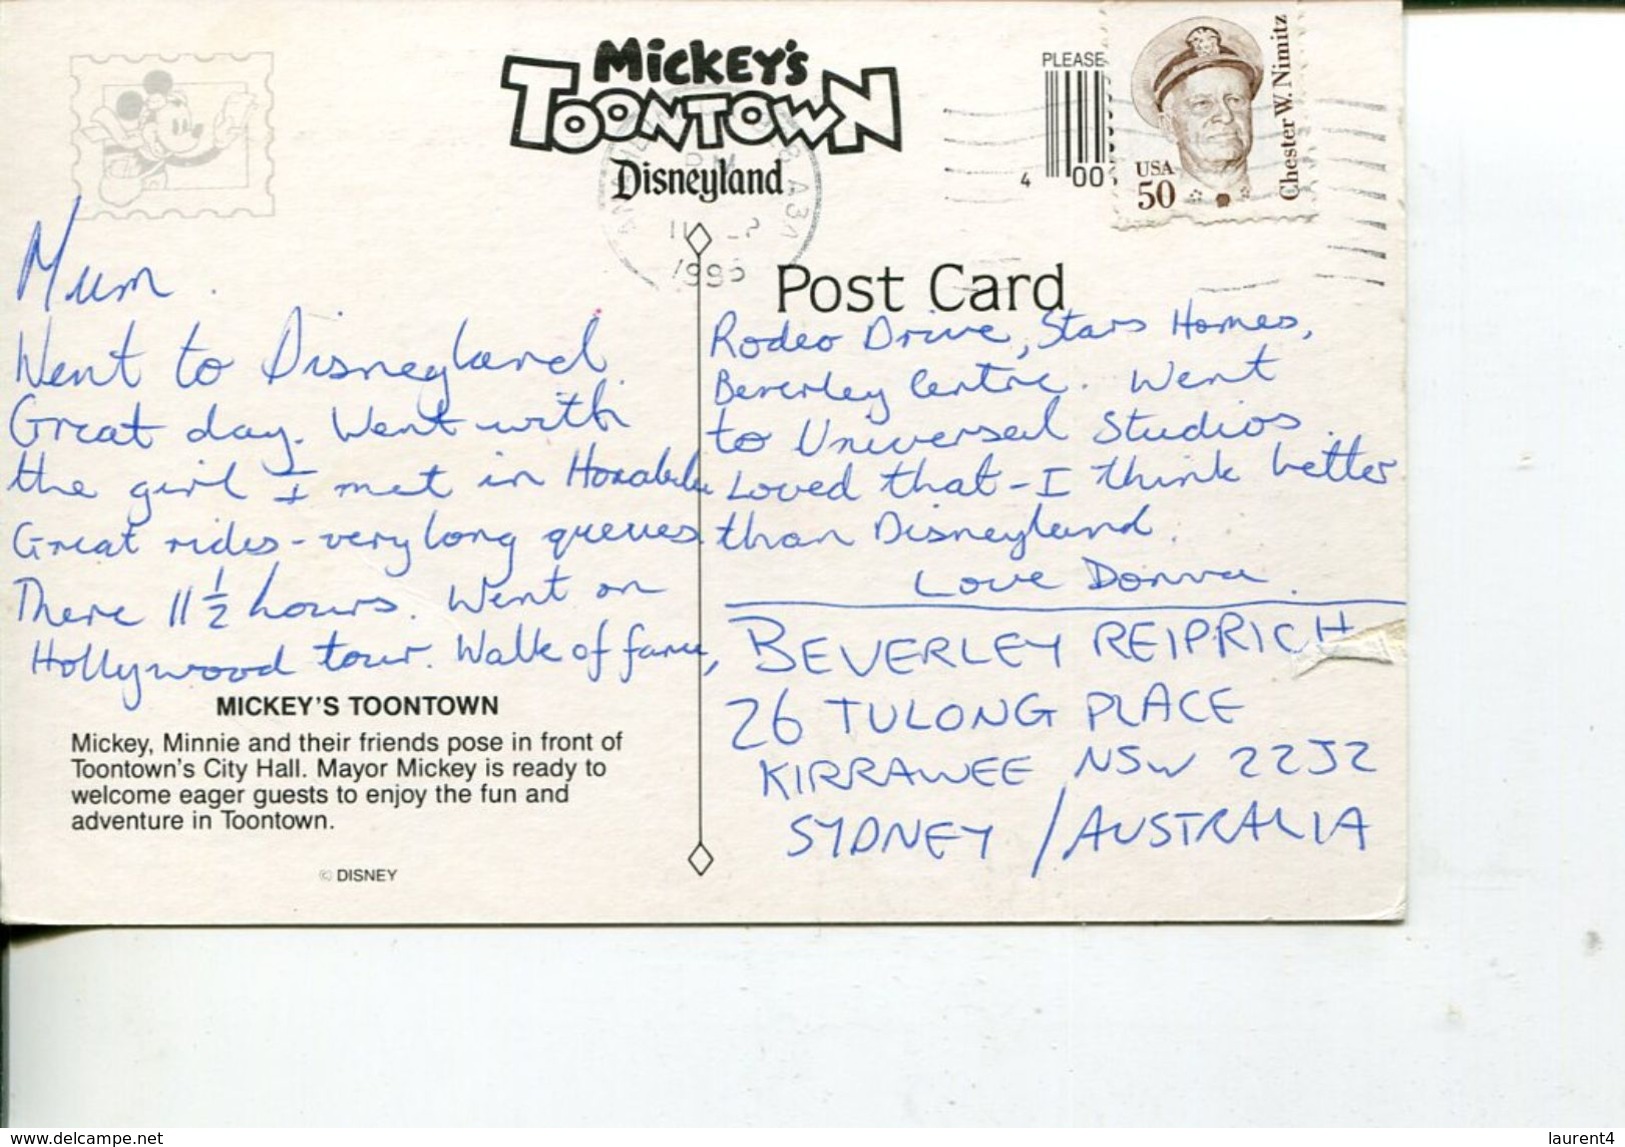 MICKEY'S
TOONTOWN
Disneyland
PLEASE
4 00
USA
50
Chester W. Nimitz
PM
1995
Post Card
Mum.
Went to Disneyland.
Great day. Went with
the girl I met in Honolulu
Great rides - very long queues
There 11 1/2 hours. Went on
Hollywood tour. Walk of fame,
Rodeo Drive, Stars Homes,
Beverley Centre. Went
to Universal Studios.
Loved that - I think better
than Disneyland.
Love Donna.
BEVERLEY REIPRICH
26 TULONG PLACE
KIRRAWEE NSW 2232
SYDNEY / AUSTRALIA
MICKEY'S TOONTOWN
Mickey, Minnie and their friends pose in front of
Toontown's City Hall. Mayor Mickey is ready to
welcome eager guests to enjoy the fun and
adventure in Toontown.
© DISNEY
www.delcampe.net
laurent4